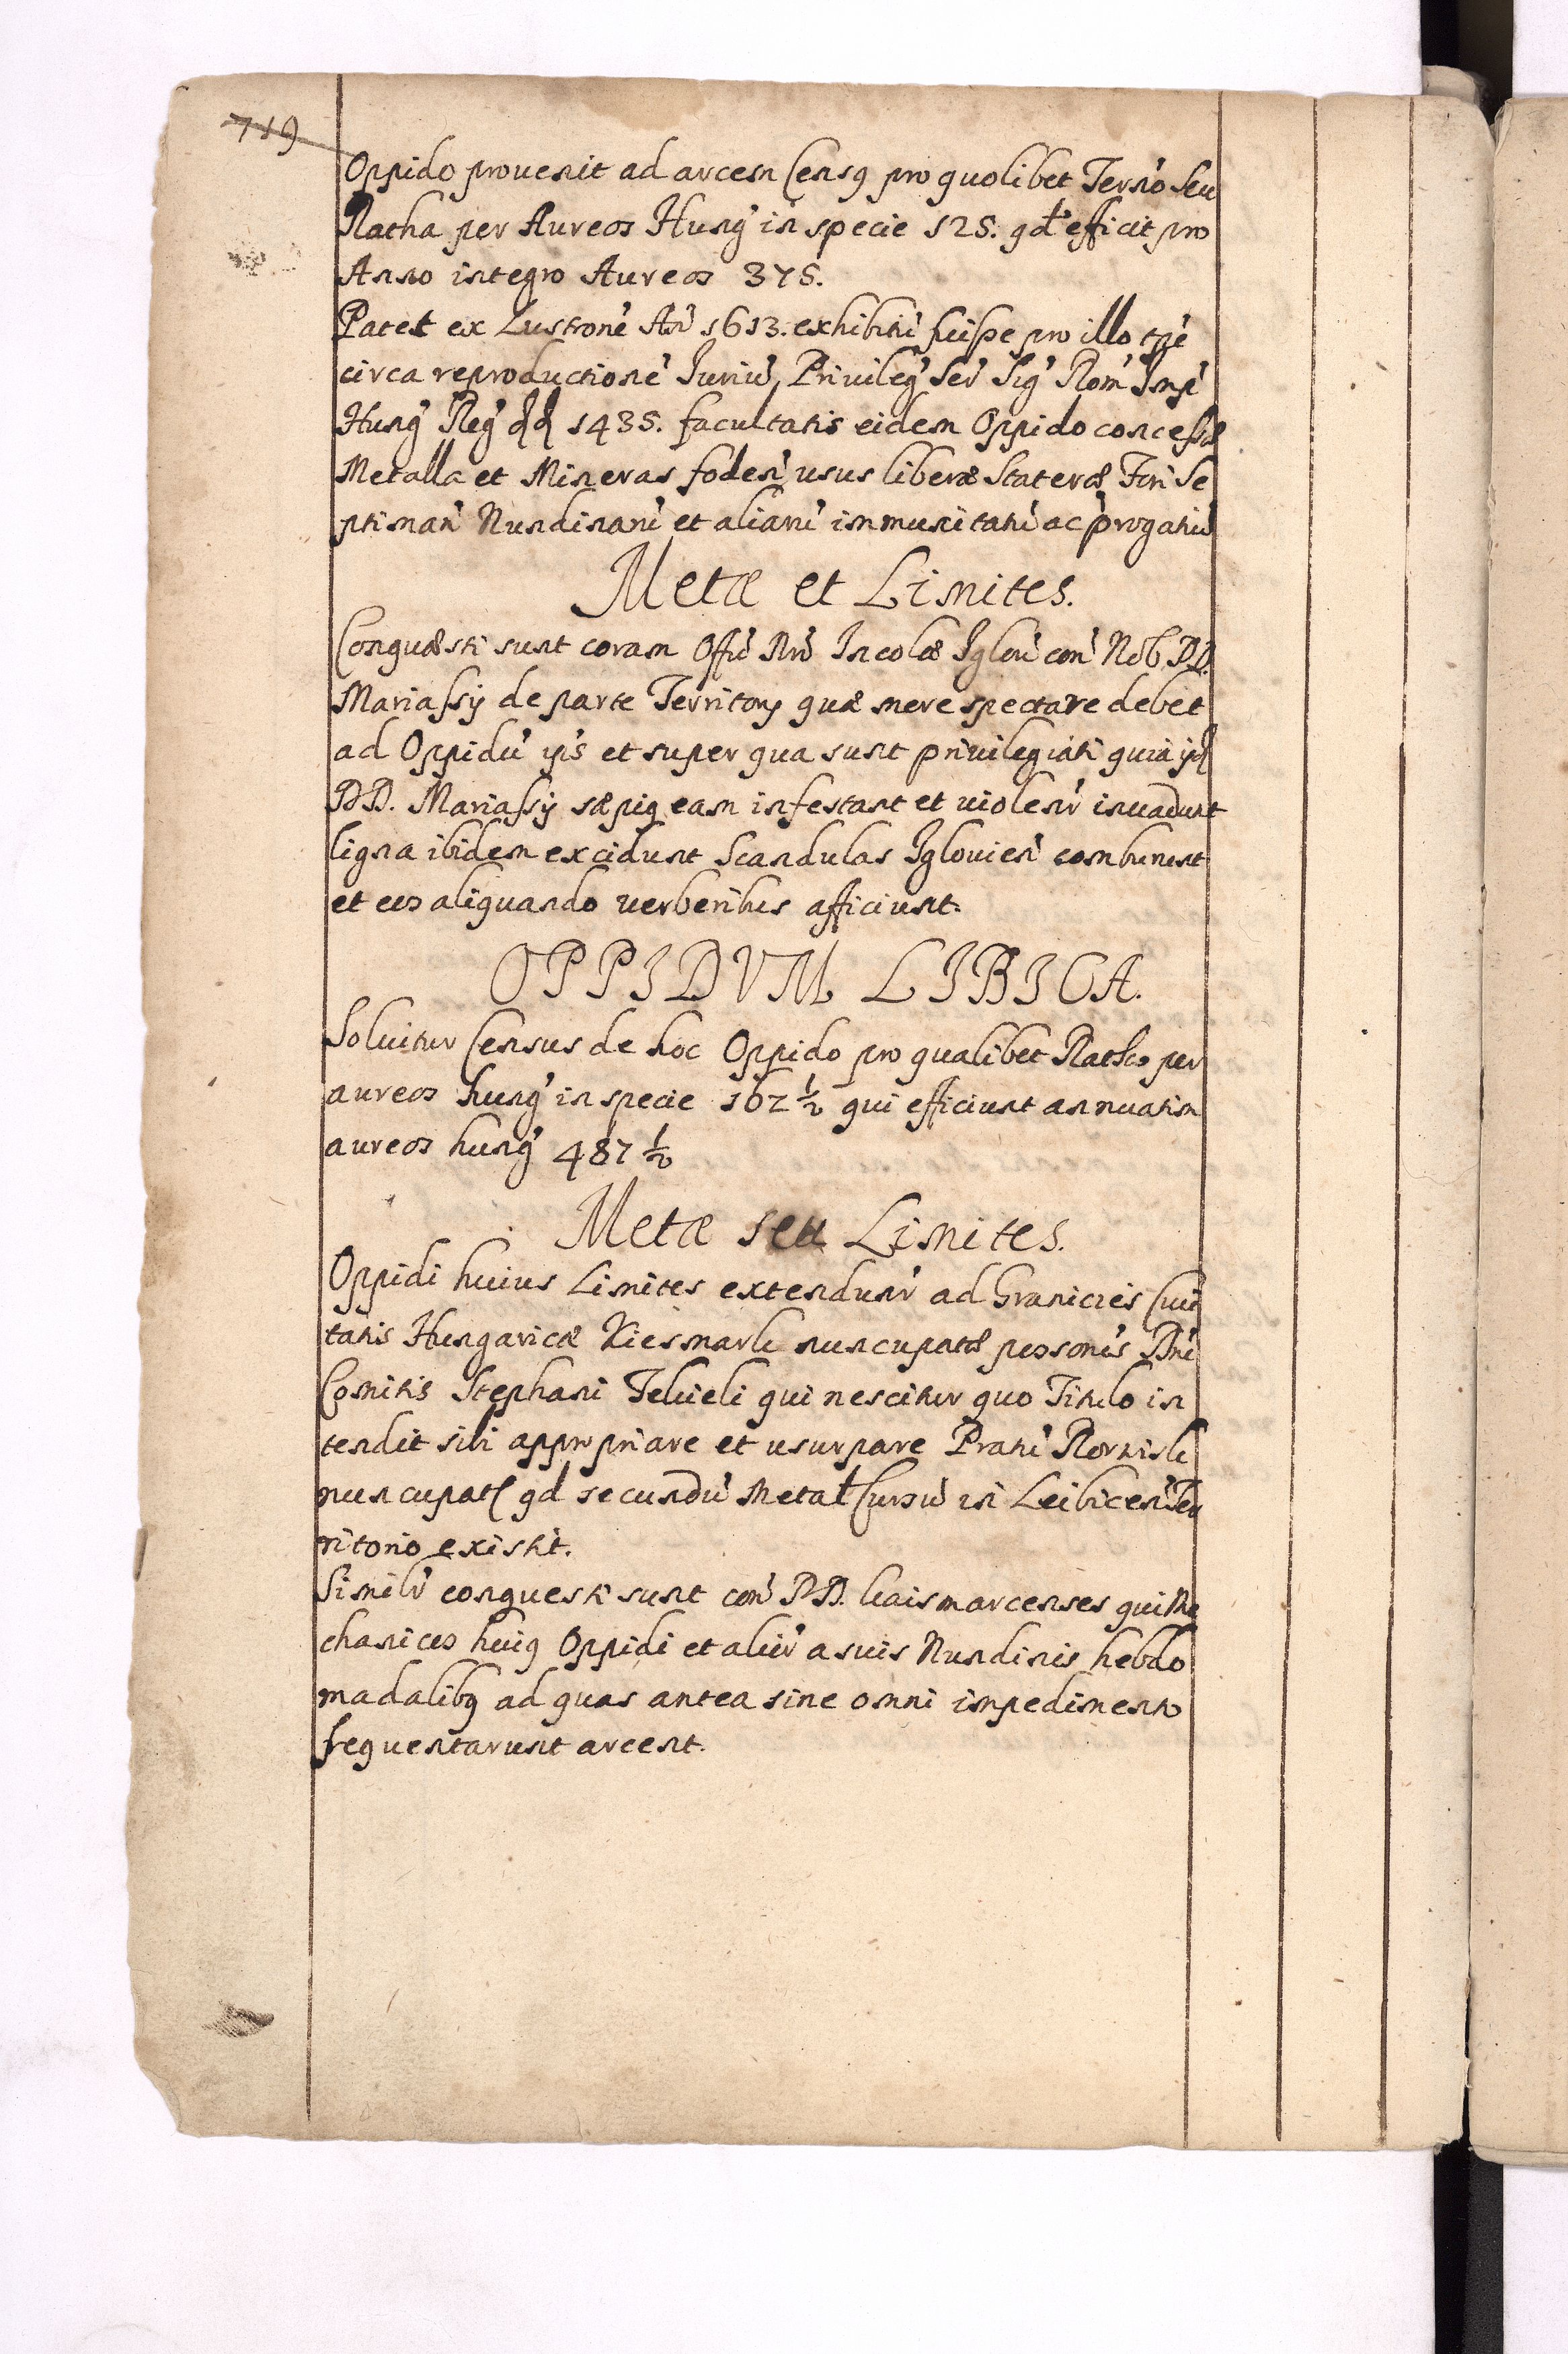 719
Oppido prouenit ad arcem Censq pro quolibet Terno Seu
Ratha per Aureos Hung' in specie 125. qd' efficit pro
Anno integro Aureos 375.
Patet ex Lustrone' An' 1613. exhibitu' fuisse pro illo tpe'
circa reproductione' Juriu', Privileg' Ser' Sig' Rom' Imp'
Hung' Reg' 1435. facultatis eidem Oppido concessæ
Metalla et Mineras foden' usus liberæ Stateræ Fori Se
ptiman' Nundinaru' et aliaru' immunitatu' ac p'rogatiu'
Metæ et Limites.
Conquæsti sunt coram Offu' Nro' Incolæ Iglou' con' Nob' DD.
Mariassy de parte Territorij quæ mere spectare debet
ad Oppidu' ipis' et super qua sunt privilegiati quia
DD. Mariassij sæpiq eam infestant et violenr' inuadunt
ligna ibidem excidunt Scandulas Iglouien' comburunt
et eos aliquando verberibus afficiunt.
OPPIDVM LIBICA.
Soluitur Census de hoc Oppido pro qualibet Ratha per
aureos hung' in specie 162 ½ qui efficiunt annuatim
aureos hung' 487 ½
Metæ seu Limites.
Oppidi huius Limites extendunr' ad Granicies Ciui
tatis Hungaricæ Kiesmark nuncupatæ possonis' Dni'
Comitis Stephani Tekieli qui nescitur quo Titulo in
tendit sibi appropriare et usurpare Pratu' Rornisk
nuncupat qd secundu' Metal Cursu' in Leibicen' Ter
ritorio existit.
Similr' conquesti sunt con' DD. kaismarcenses qui Me
chanicos huiq Oppidi et alior' a suis Nundinis hebdo
madalibq ad quas antea sine omni impedimento
frequentarunt arcent.